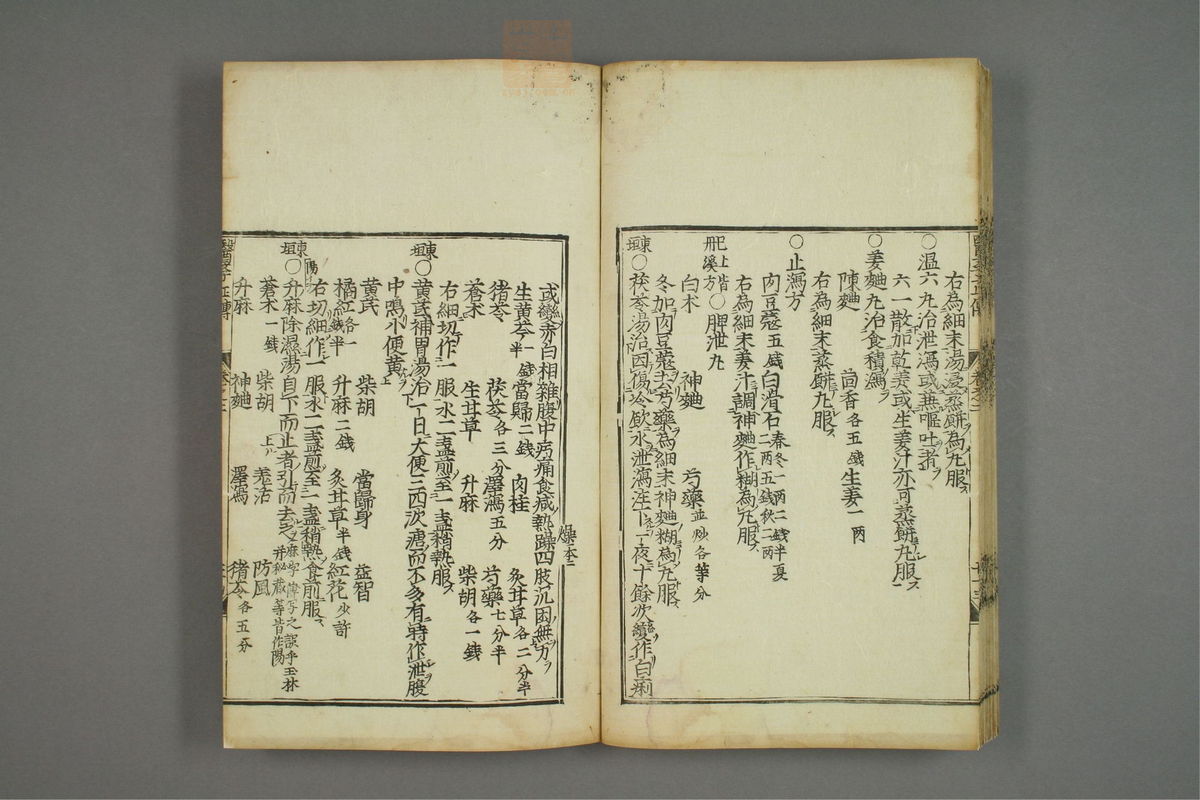 右為細末湯浸蒸餅為丸服ス
○温六丸治泄瀉或兼嘔吐者
六一散加乾姜或生姜汁亦可蒸餅丸服
○姜麯丸治食積瀉
陳麯 茴香各五錢生姜一两
右為細末蒸餅丸服ス
○止瀉方
肉豆蔲五錢白滑石春冬一两二錢半夏二两五錢秋二两
右為細末姜汁調神麯作糊為丸服ス
已上皆丹溪方○脾泄丸
白朮 神麯 芍藥並炒各等分
冬加肉豆蔲去芍藥為細末神麯糊為丸服ス
東垣○茯苓湯治因傷冷飲水泄瀉注下一夜十餘次變作白痢
或變赤白相雜腹中㽲痛食减熱躁四肢沉困無力
燥本ニ
生黄芩一錢半當歸二錢 肉桂 炙甘草各二分半
猪苓 茯苓各三分澤瀉五分 芍藥七分半
蒼朮 生甘草 升麻 柴胡各一錢
右細切作一服水二盞煎至一盞稍熱服ス
東垣○黄芪補胃湯治一日大便三四次溏而不多有時作泄腹
中鳴小便黄
黄芪 柴胡 當歸身 益智
橘紅各一錢半 升麻二錢 炙甘草半錢紅花少許
右切細作一服水二盞煎至一盞稍熱食前服ス
東垣○升麻除濕湯自下而止者引而去之
陽
蒼朮一錢 柴胡 羌活 防風
升麻 神麯 澤瀉 猪苓各五分